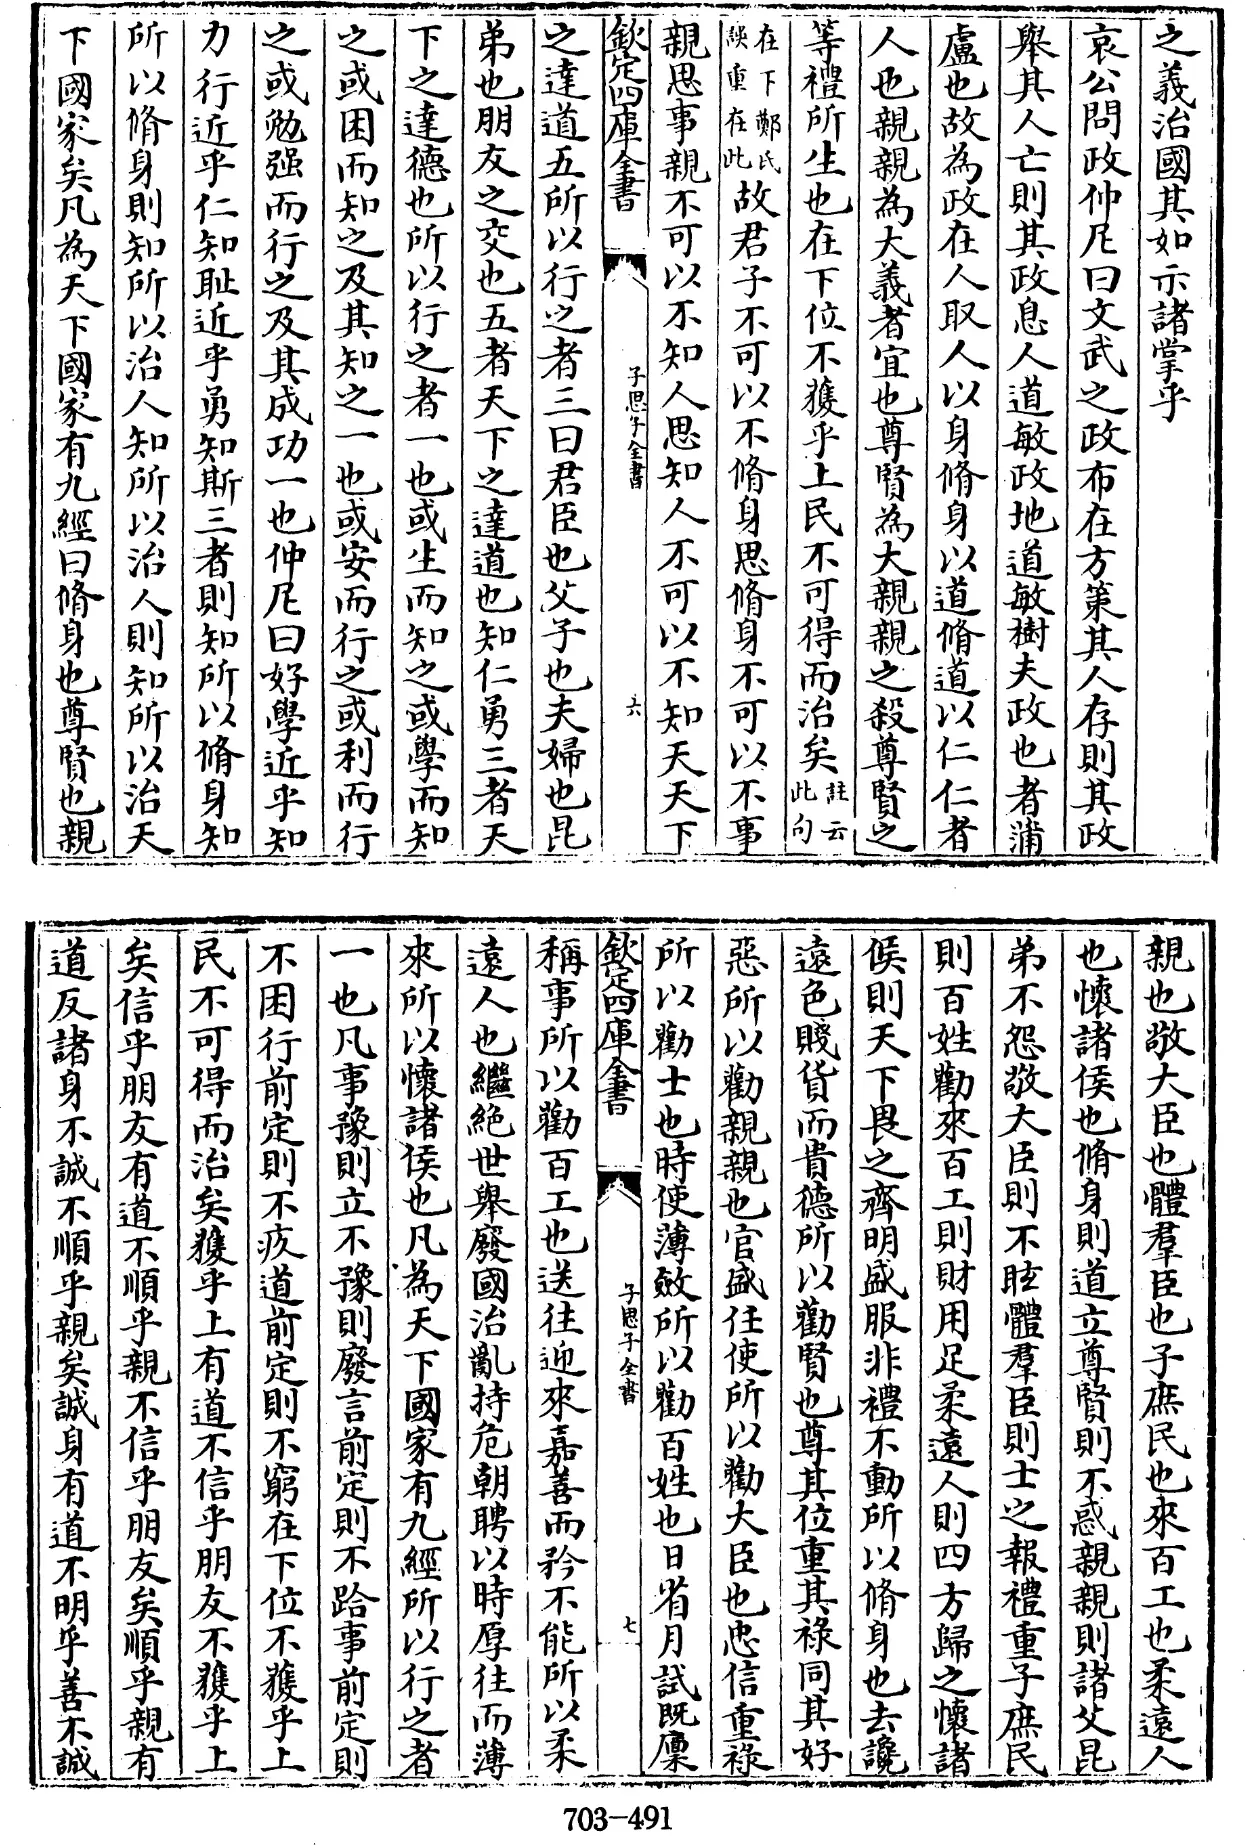 之義治國其如示諸掌乎
哀公問政仲尼曰文武之政布在方策其人存則其政
舉其人亡則其政息人道敏政地道敏樹夫政也者蒲
盧也故為政在人取人以身脩身以道脩道以仁仁者
人也親親為大義者宜也尊賢為大親親之殺尊賢之
等禮所生也在下位不獲乎上民不可得而治矣註云此句
在下鄭氏誤重在此故君子不可以不脩身思脩身不可以不事
親思事親不可以不知人思知人不可以不知天天下
欽定四庫全書
子思子全書
六
之達道五所以行之者三曰君臣也父子也夫婦也昆
弟也朋友之交也五者天下之達道也知仁勇三者天
下之達德也所以行之者一也或生而知之或學而知
之或困而知之及其知之一也或安而行之或利而行
之或勉强而行之及其成功一也仲尼曰好學近乎知
力行近乎仁知恥近乎勇知斯三者則知所以脩身知
所以脩身則知所以治人知所以治人則知所以治天
下國家矣凡為天下國家有九經曰脩身也尊賢也親
親也敬大臣也體羣臣也子庶民也來百工也柔遠人
也懷諸侯也脩身則道立尊賢則不惑親親則諸父昆
弟不怨敬大臣則不眩體羣臣則士之報禮重子庶民
則百姓勸來百工則財用足柔遠人則四方歸之懷諸
侯則天下畏之齊明盛服非禮不動所以脩身也去讒
遠色賤貨而貴德所以勸賢也尊其位重其祿同其好
惡所以勸親親也官盛任使所以勸大臣也忠信重祿
所以勸士也時使薄斂所以勸百姓也日省月試既廩
欽定四庫全書
子思子全書
七
稱事所以勸百工也送往迎來嘉善而矜不能所以柔
遠人也繼絕世舉廢國治亂持危朝聘以時厚往而薄
來所以懷諸侯也凡為天下國家有九經所以行之者
一也凡事豫則立不豫則廢言前定則不跲事前定則
不困行前定則不疚道前定則不窮在下位不獲乎上
民不可得而治矣獲乎上有道不信乎朋友不獲乎上
矣信乎朋友有道不順乎親不信乎朋友矣順乎親有
道反諸身不誠不順乎親矣誠身有道不明乎善不誠
703-491